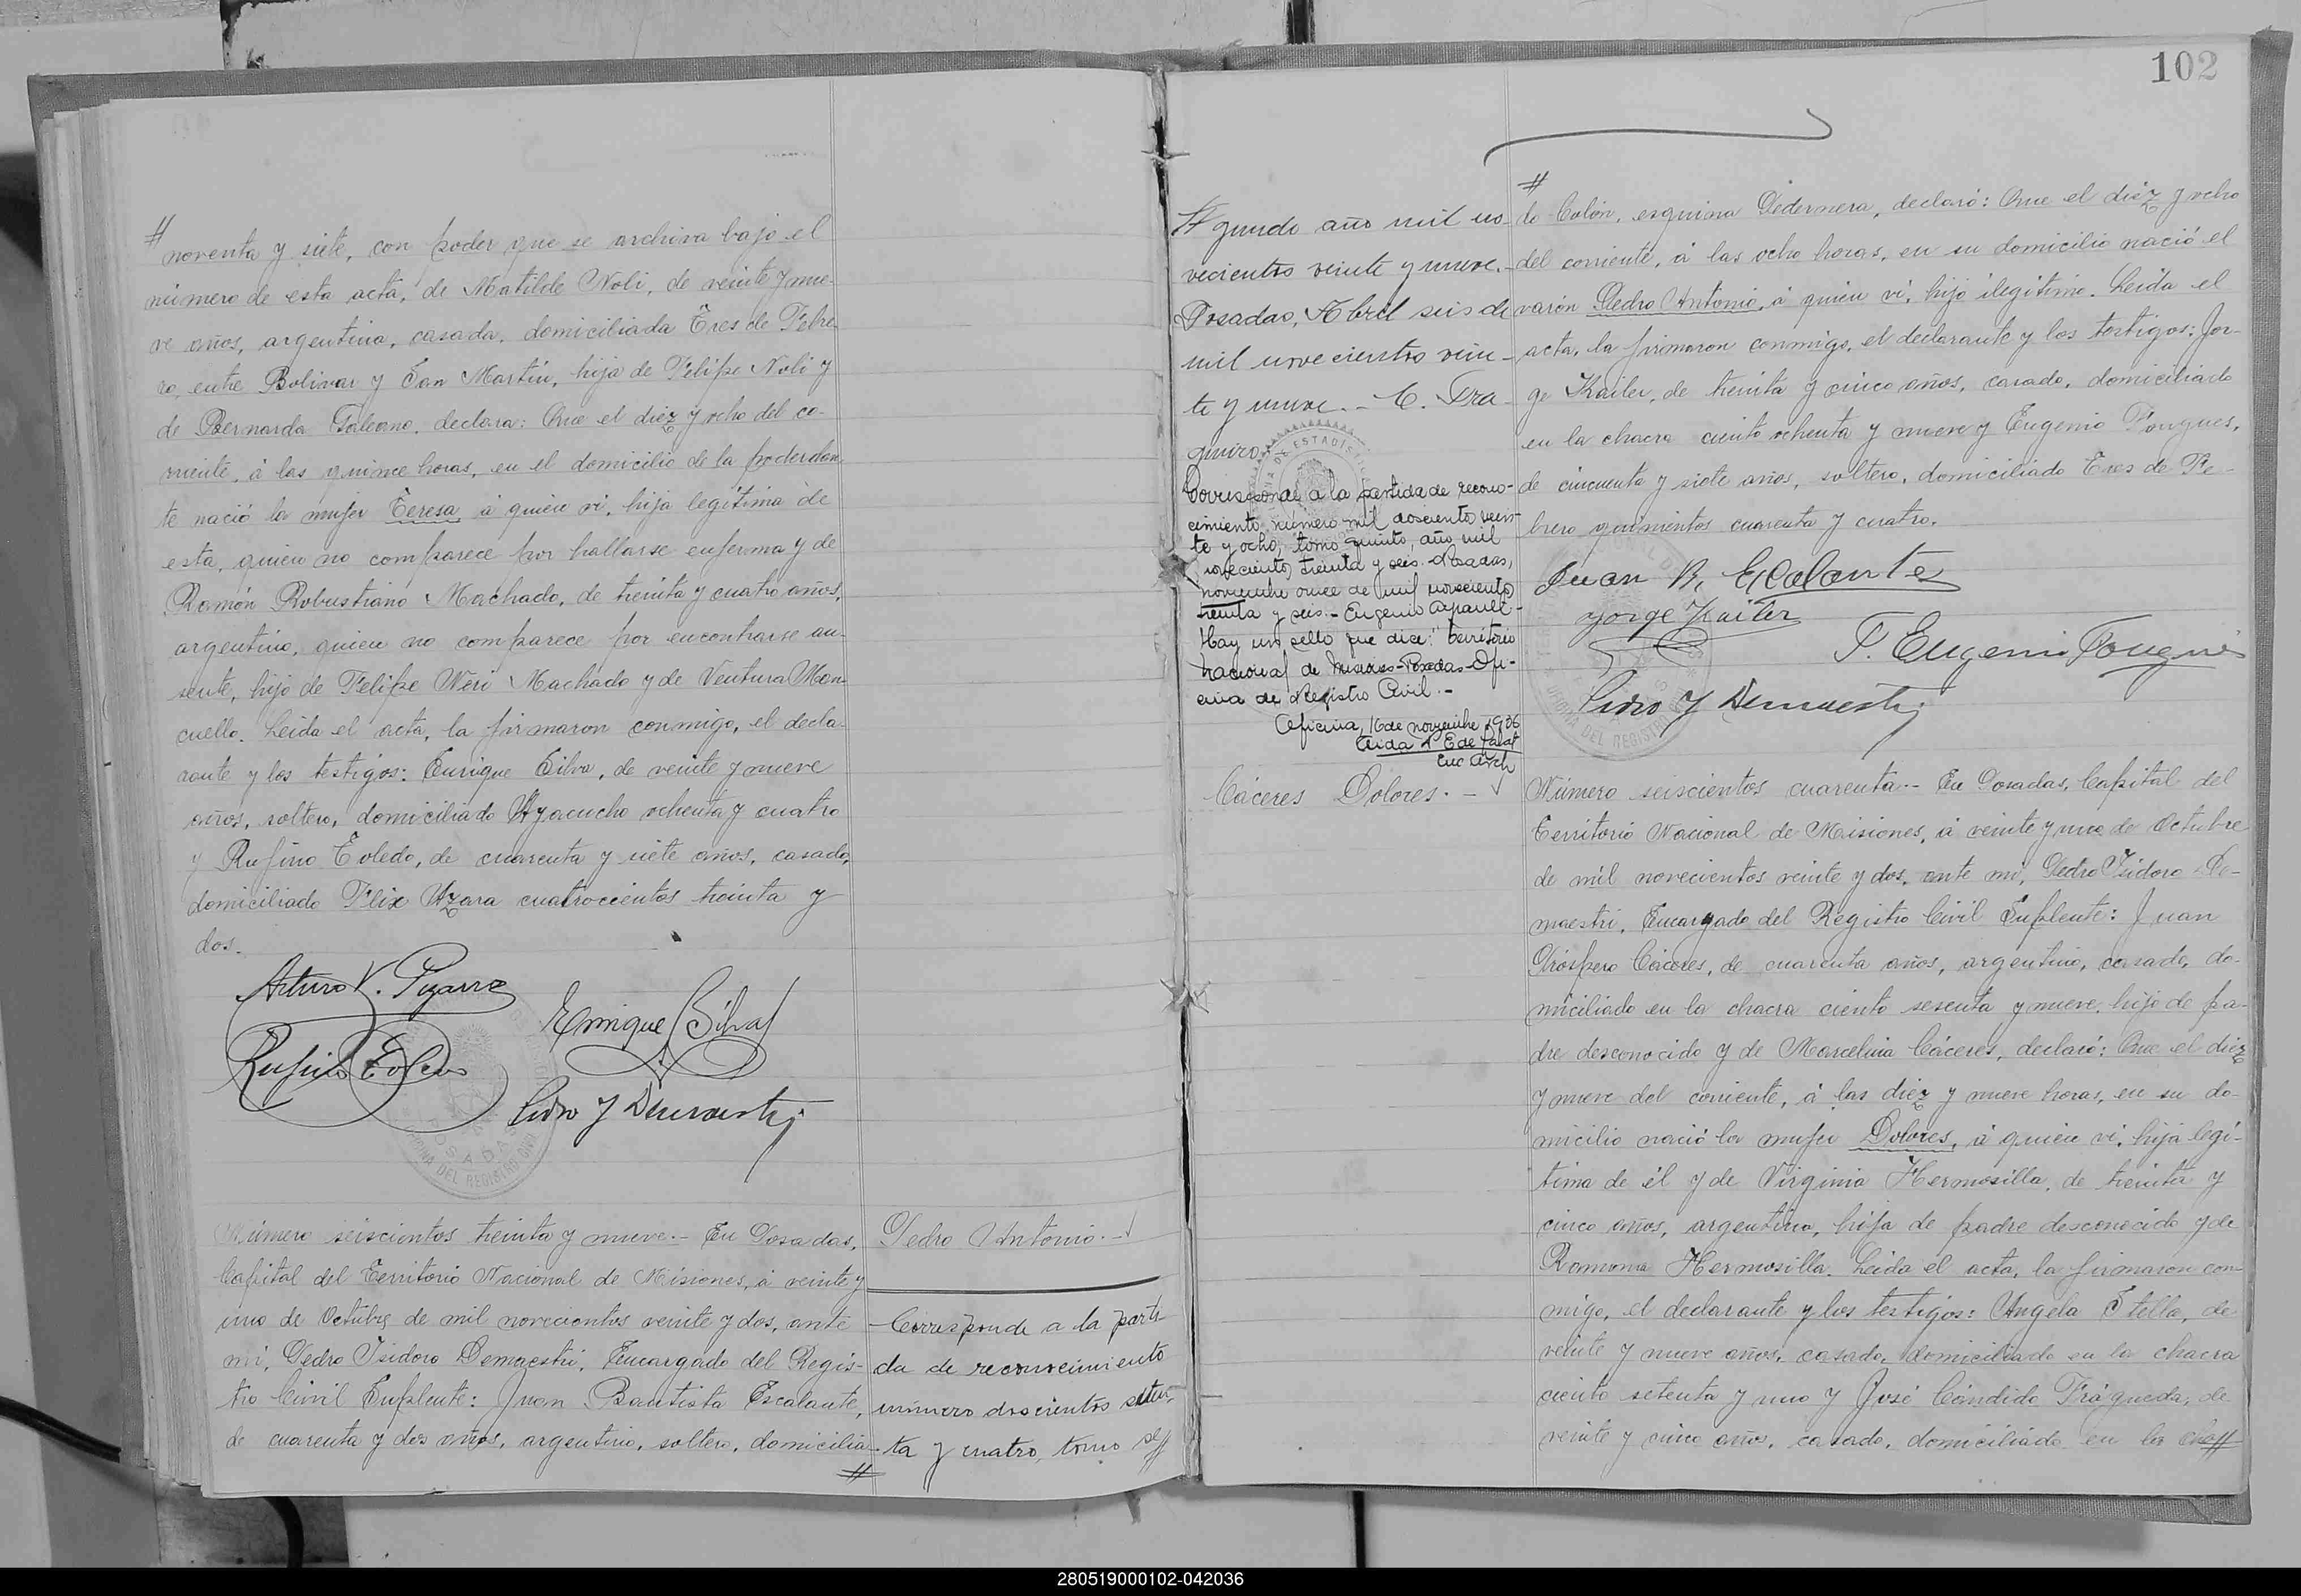 noventa y siete, con poder que se archiva bajo el
número de esta acta, de Matilde Noli, de veinte y nue-
ve años, argentina, casada, domiciliada Tres de Febre-
ro, entre Bolivar y San Martin, hija de Felipe Noli y
de Bernarda Galeano, declara: Que el diez y ocho del co-
rriente, á las quince horas, en el domicilio de la poderdan-
te nació la mujer Teresa á quien vi, hija legítima de
esta, quien no comparece por hallarse enferma y de
Ramón Robustiano Machado, de treinta y cuatro años,
argentino, quien no comparece por encontrarse au-
sente, hijo de Felipe Neri Machado y de Ventura Mon-
cuello. Leida el acta, la firmaron conmigo, el decla-
rante y los testigos: Enrique Silva, de veinte y nueve
años, soltero, domiciliado Ayacucho ochenta y cuatro
y Rufino Toledo, de cuarenta y siete años, casado,
domiciliado Felix Azara cuatrocientos treinta y
dos.
Arturo V. Pizarro
Enrique Silva
Rufino Toledo
Pedro Y Demaestri
Número seiscientos treinta y nueve.- En Posadas,
Capital del Territorio Nacional de Misiones, á veinte y
uno de Octubre de mil novecientos veinte y dos, ante
mi, Pedro Isidoro Demaestri, Encargado del Regis-
tro Civil Suplente: Juan Bautista Escalante,
de cuarenta y dos años, argentino, soltero, domicilia-
Pedro Antonio.-
Corresponde a la parti-
da de reconocimiento
número doscientos seten-
ta y cuatro, tomo se
102
gundo año mil no-
vecientos veinte y nueve.-
Posadas, Abril seis de
mil novecientos vein-
te y nueve.- C. Fra-
guiro
Corresponde a la partida de recono-
cimiento número mil doscientos vein-
te y ocho, tomo quinto, año mil
novecientos treinta y seis. Posadas,
noviembre once de mil novecientos
treinta y seis.- Eugenio
Hay un sello que dice: "Territorio
Nacional de Misiones-Posadas-Ofi-
cina de Registro Civil.-
Oficina, 16 de noviembre 1936
Enc Arch
Cáceres Dolores.-
do Colón, esquina Pedernera, declaró: Que el diez y ocho
del corriente, á las ocho horas, en su domicilio nació el
varón Pedro Antonio, á quien vi, hijo ilegítimo. Leida el
acta, la firmaron conmigo, el declarante y los testigos: Jor-
ge Kailer, de treinta y cinco años, casado, domiciliado
en la chacra ciento ochenta y nueve y Eugenio Fougues,
de cincuenta y siete años, soltero, domiciliado Tres de Fe-
brero quinientos cuarenta y cuatro.
Juan B. Escalante
Jorge Kailer
P. Eugenio Fougues
Pedro Y Demaestri
Número seiscientos cuarenta.- En Posadas, Capital del
Territorio Nacional de Misiones, á veinte y uno de Octubre
de mil novecientos veinte y dos, ante mi, Pedro Isidoro De-
maestri, Encargado del Registro Civil Suplente: Juan
Próspero Cáceres, de cuarenta años, argentino, casado, do-
miciliado en la chacra ciento sesenta y nueve, hijo de pa-
dre desconocido y de Marcelina Cáceres, declaró: Que el diez
y nueve del corriente, á las diez y nueve horas, en su do-
micilio nació la mujer Dolores, á quien vi, hija legí-
tima de él y de Virginia Hermosilla, de treinta y
cinco años, argentina, hija de padre desconocido y de
Ramona Hermosilla. Leida el acta, la firmaron con-
migo, el declarante y los testigos: Angela Stella, de
veinte y nueve años, casado, domiciliado en la chacra
ciento setenta y uno y José Cándido Frágueda, de
veinte y cinco años, casado, domiciliado en la cha
280519000102-042036